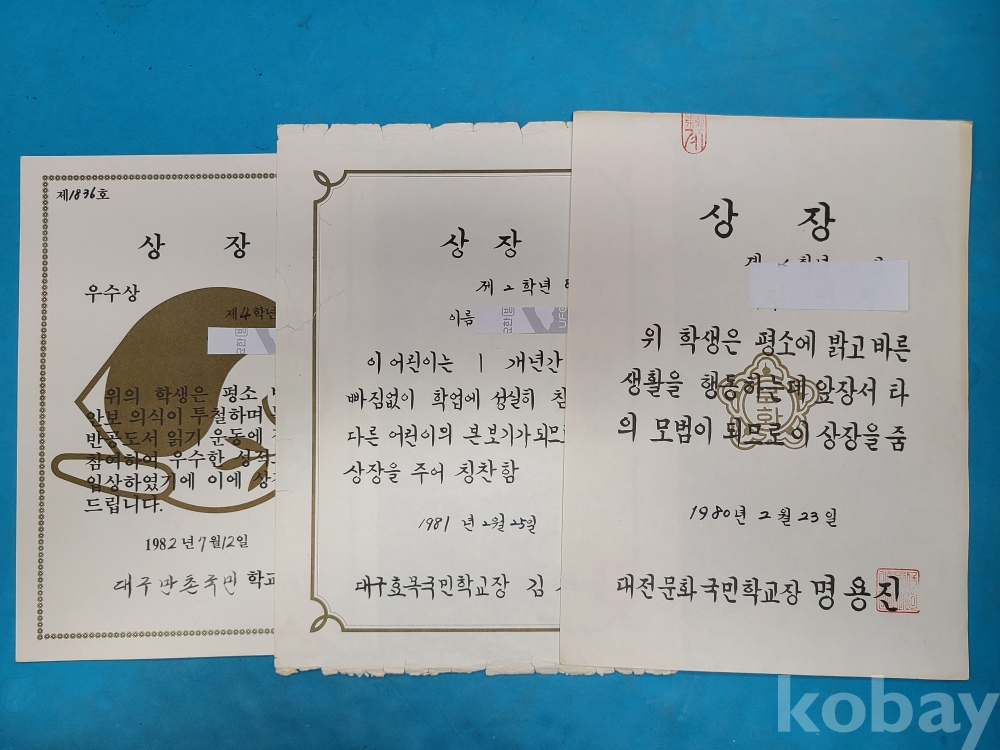 제1836호
상 장
우수상
제4학년
위의 학생은 평소
안보 의식이 투철하며
반공도서 읽기 운동에
참여하여 우수한 성적
입상하였기에 이에 상
드립니다.
1982년 7월 12일
대구만촌국민 학교
상 장
제 2 학년
이름
이 어린이는 1 개년간
빠짐없이 학업에 성실히
다른 어린이의 본보기가되므로
상장을 주어 칭찬함
1981년 2월 25일
대구효목국민학교장 김
계
상 장
위 학생은 평소에 밝고 바른
생활을 행동하는데 앞장서 타
의 모범이 되므로 이 상장을 줌
1980년 2월 23일
대전문화국민학교장 명용진
kobay